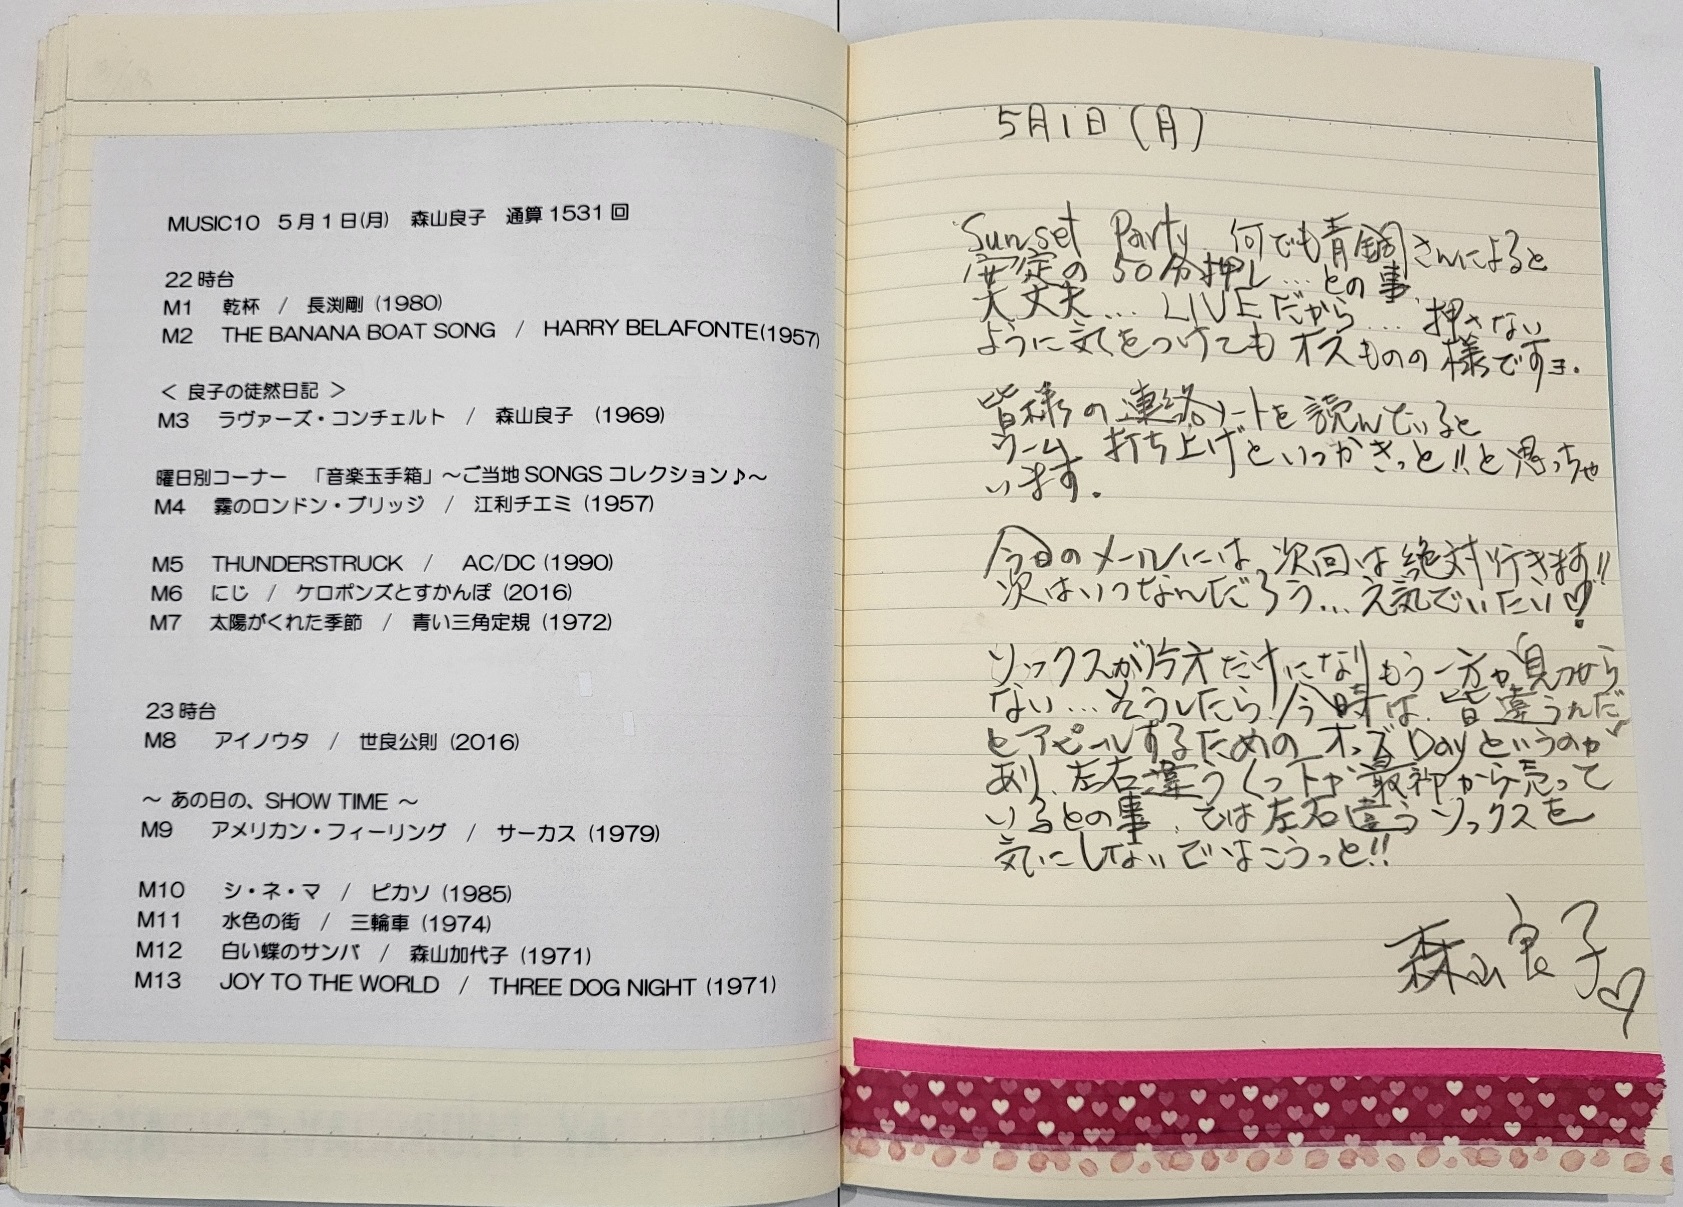 MUSIC10 5月1日(月) 森山良子 通算1531回
22時台
M1 乾杯 / 長渕剛 (1980)
M2 THE BANANA BOAT SONG / HARRY BELAFONTE(1957)
< 良子の徒然日記 >
M3 ラヴァーズ・コンチェルト / 森山良子 (1969)
曜日別コーナー 「音楽玉手箱」~ご当地SONGSコレクション♪~
M4 霧のロンドン・ブリッジ / 江利チエミ (1957)
M5 THUNDERSTRUCK / AC/DC (1990)
M6 にじ / ケロポンズとすかんぽ (2016)
M7 太陽がくれた季節 / 青い三角定規 (1972)
23時台
M8 アイノウタ / 世良公則 (2016)
~ あの日の、SHOW TIME ~
M9 アメリカン・フィーリング / サーカス (1979)
M10 シ・ネ・マ / ピカソ (1985)
M11 水色の街 / 三輪車 (1974)
M12 白い蝶のサンバ / 森山加代子 (1971)
M13 JOY TO THE WORLD / THREE DOG NIGHT (1971)
5月1日(月)
Sunset Party 何でも青さんによると
安定の50分押し…との事
大丈夫… LIVEだから… 押さない
ように気をつけてもオスものの様ですヨ.
皆様の連絡ノートを読んでいると
ウーム 打ち上げといつかきっと!!と思っちゃ
います.
今日のメールには 次回は絶対行きます!!
次はいつなんだろう…元気でいたい♡!
ソックスが片方だけになりもう一方が見つから
ない…そうしたら!今時は 皆違うんだ
とアピールするためのオッズDayというのが
あり、左右違うくつ下が最初から売って
いるとの事. では左右違うソックスを
気にしないではこうっと!!
森山良子♡